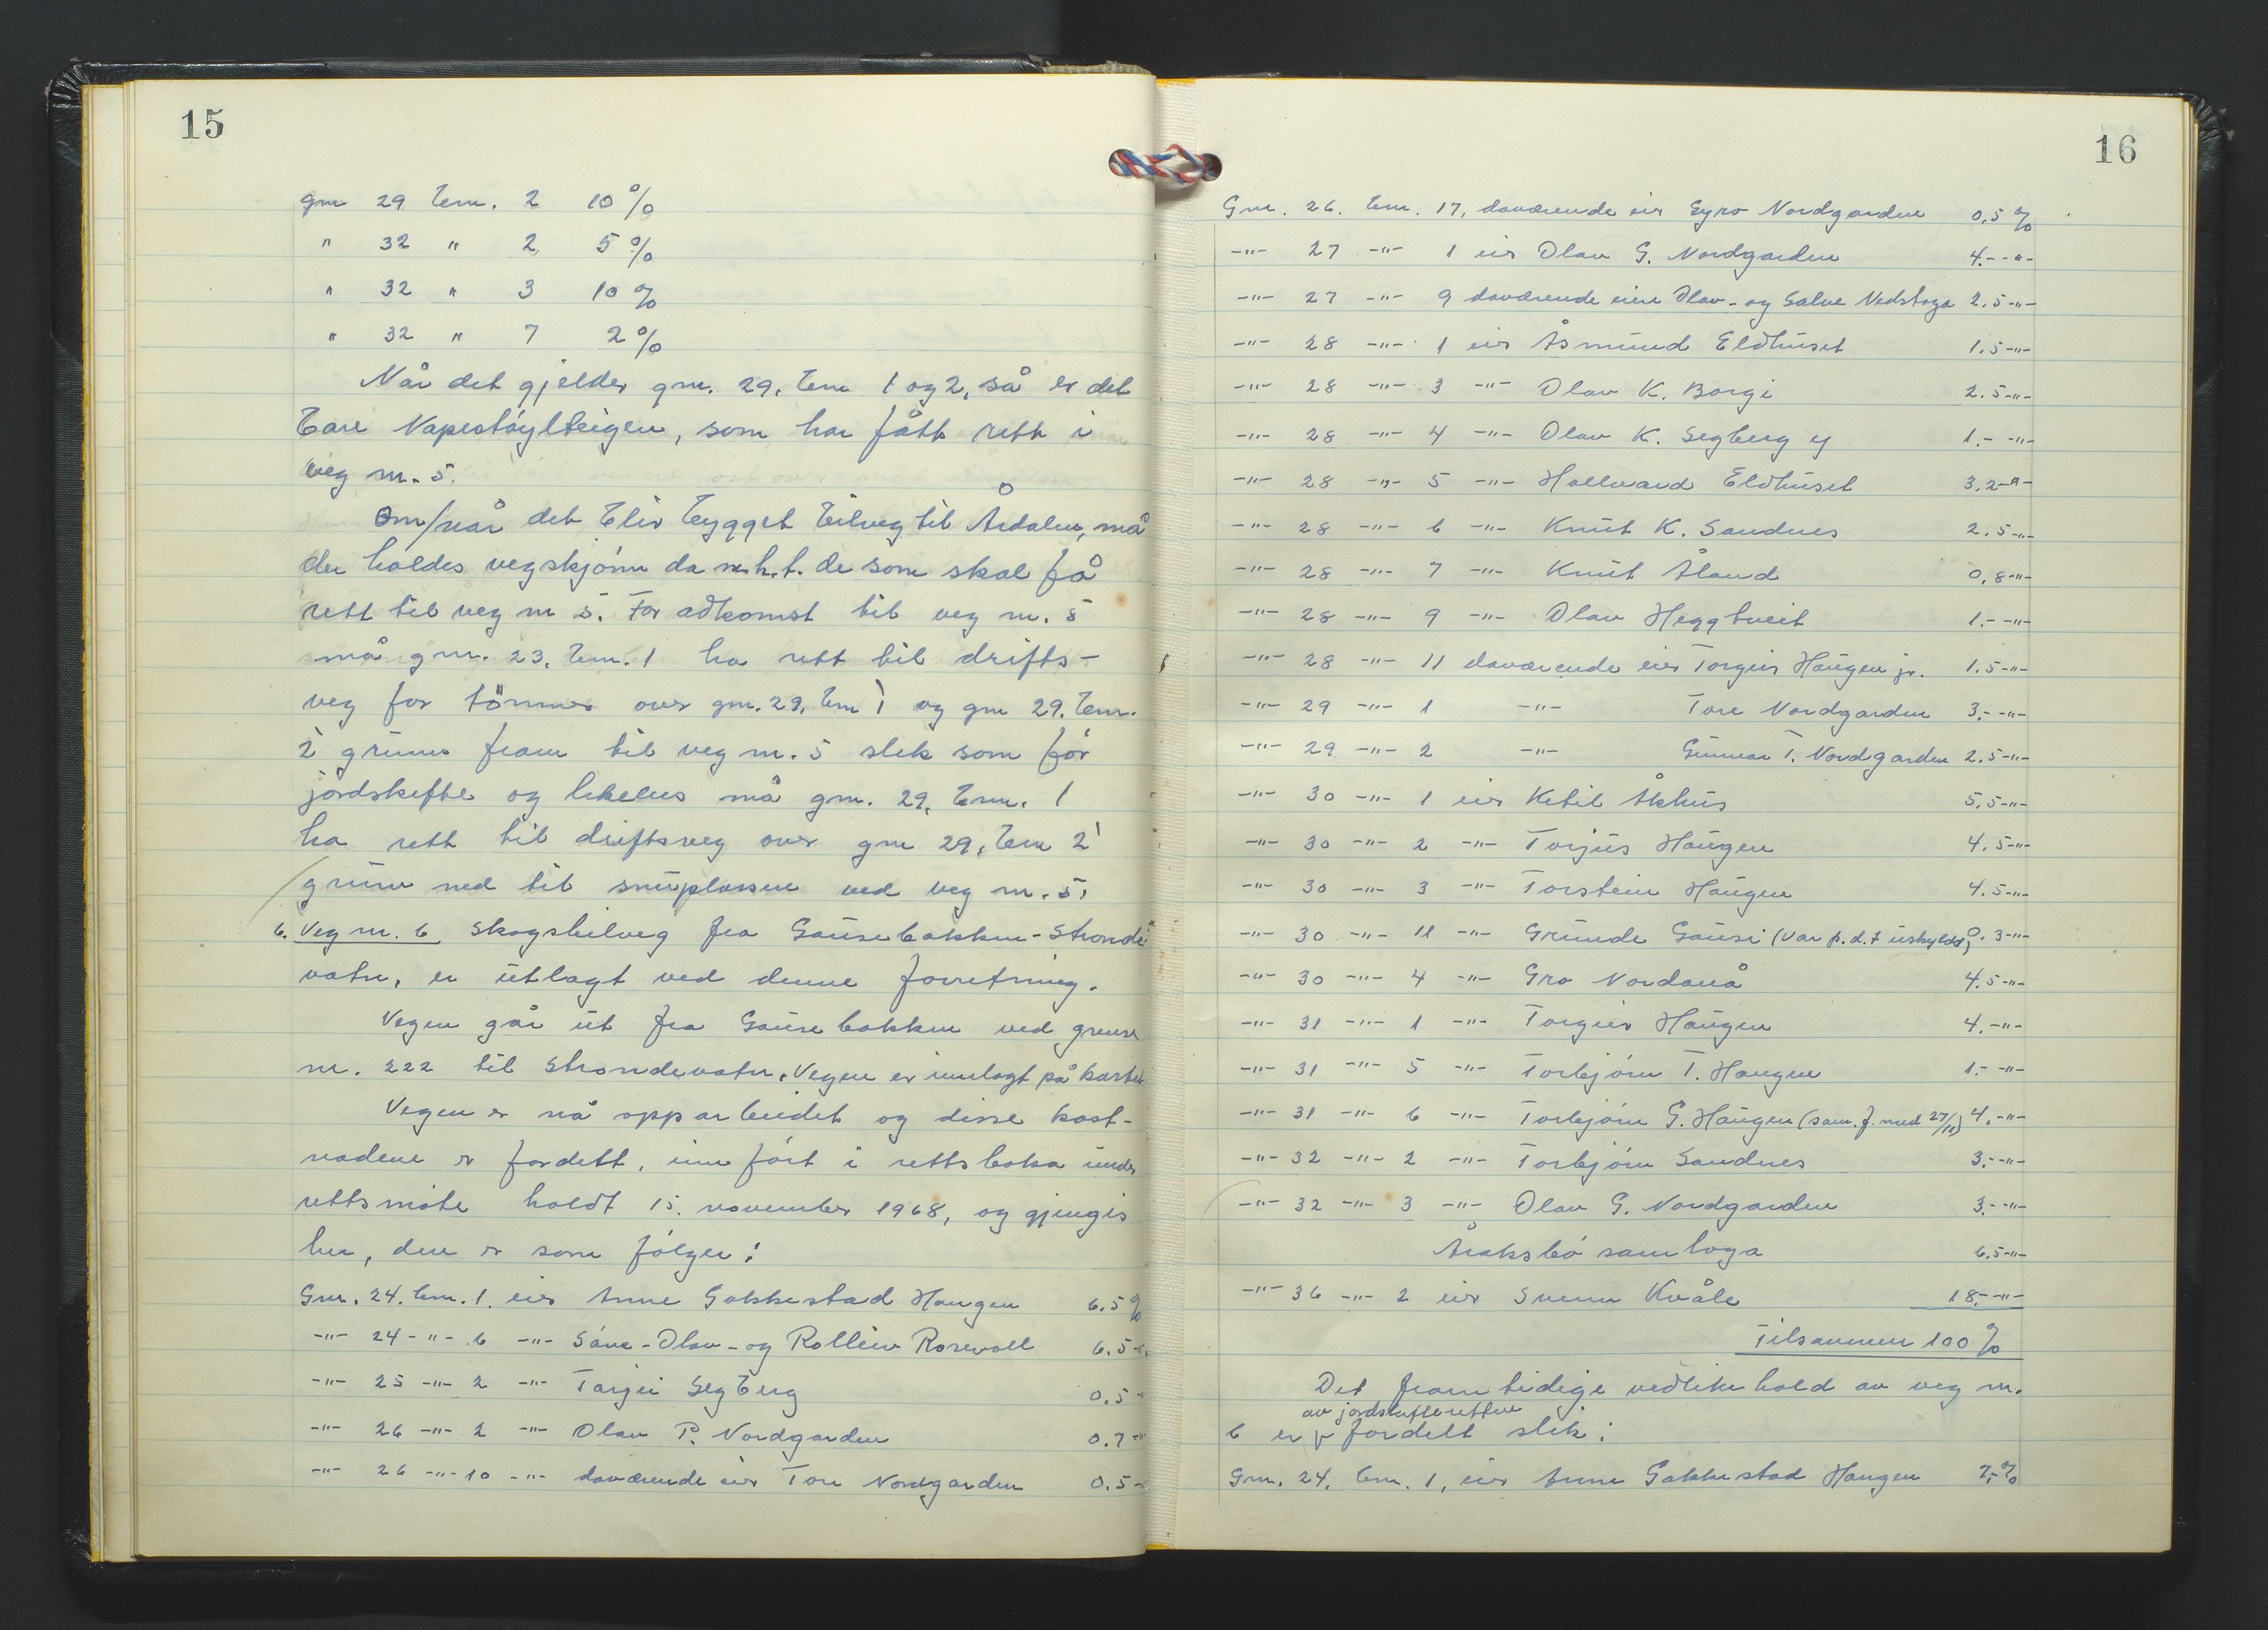 15
gnr 29 bnr. 2 10 %
" 32 " 2 5 %
" 32 " 3 10 %
" 32 " 7 2 %
Når det gjelder gnr. 29, bnr 1 og 2, så er det
bare Napestøylteigen, som har fått rett i
veg nr. 5.
Om/når det blir bygget bilveg til Årdalen, må
der holdes vegskjønn da m.h.t. de som skal få
rett til veg nr 5. For adkomst til veg nr. 5
må gnr. 23, bnr. 1 ha rett til drifts-
veg for tømmer over gnr. 29, bnr 1 og gnr 29, bnr.
2' grunn fram til veg nr. 5 slik som før
jordskifte og likeleis må gnr. 29, bnr. 1
ha rett til driftsveg over gnr 29, bnr 2'
grunn ned til snuplassen ved veg nr. 5.
6. Veg nr. 6 Skogsbilveg fra Gausebakken - Stronde-
vatn, er utlagt ved denne forretning.
Vegen går ut fra Gausebakken ved grense
nr. 222 til Strondevatn. Vegen er innlagt på kartet.
Vegen er nå opparbeidet og disse kost-
nadene er fordelt, innført i rettsboka under
rettsmøte holdt 15. november 1968, og gjengis
her, den er som følger:
Gnr. 24. bnr. 1. eier Anne Gakkestad Haugen 6.5 %
-"- 24 -"- 6 -"- Såve - Olav - og Rolleiv Rosevoll 6.5 -"-
-"- 25 -"- 2 -"- Torjei Segberg 0.5 -"-
-"- 26 -"- 2 -"- Olav P. Nordgarden 0.7 -"-
-"- 26 -"- 10 -"- daværende eier Tore Nordgarden 0.5 -"-
16
Gnr. 26. bnr. 17, daværende eier Gyro Nordgarden 0,5 %
-"- 27 -"- 1 eier Olav G. Nordgarden 4.- -"-
-"- 27 -"- 9 daværende eiere Olav - og Salve Nedstoga 2.5 -"-
-"- 28 -"- 1 eier Åsmund Eldhuset 1.5 -"-
-"- 28 -"- 3 -"- Olav K. Borgi 2.5 -"-
-"- 28 -"- 4 -"- Olav K. Segberg 1.- -"-
-"- 28 -"- 5 -"- Hallvard Eldhuset 3.2 -"-
-"- 28 -"- 6 -"- Knut K. Sandnes 2.5 -"-
-"- 28 -"- 7 -"- Knut Åland 0,8 -"-
-"- 28 -"- 9 -"- Olav Heggtveit 1.- -"-
-"- 28 -"- 11 daværende eier Torgeir Haugen jr. 1.5 -"-
-"- 29 -"- 1 -"- Tore Nordgarden 3.- -"-
-"- 29 -"- 2 -"- Gunnar T. Nordgarden 2.5 -"-
-"- 30 -"- 1 eier Ketil Åkhus 5.5 -"-
-"- 30 -"- 2 -"- Torjus Haugen 4.5 -"-
-"- 30 -"- 3 -"- Torstein Haugen 4.5 -"-
-"- 30 -"- 11 -"- Grunde Gausi (var p.d.t uskyldd) 0.3 -"-
-"- 30 -"- 4 -"- Gro Nordanå 4.5 -"-
-"- 31 -"- 1 -"- Torgeir Haugen 4. -"-
-"- 31 -"- 5 -"- Torbjørn T. Haugen 1.- -"-
-"- 31 -"- 6 -"- Torbjørn G. Haugen (sam. f. med 27/11) 4. -"-
-"- 32 -"- 2 -"- Torbjørn Sandnes 3.- -"-
-"- 32 -"- 3 -"- Olav G. Nordgarden 3.- -"-
Åraksbø samloga 6.5 -"-
-"- 36 -"- 2 eier Svenn Kvåle 18.- -"-
Tilsammen 100 %
Det framtidige vedlikehold av veg nr.
av jordskifteretten
6 er fordelt slik:
Gnr. 24, bnr. 1, eier Anne Gakkestad Haugen 7,- %